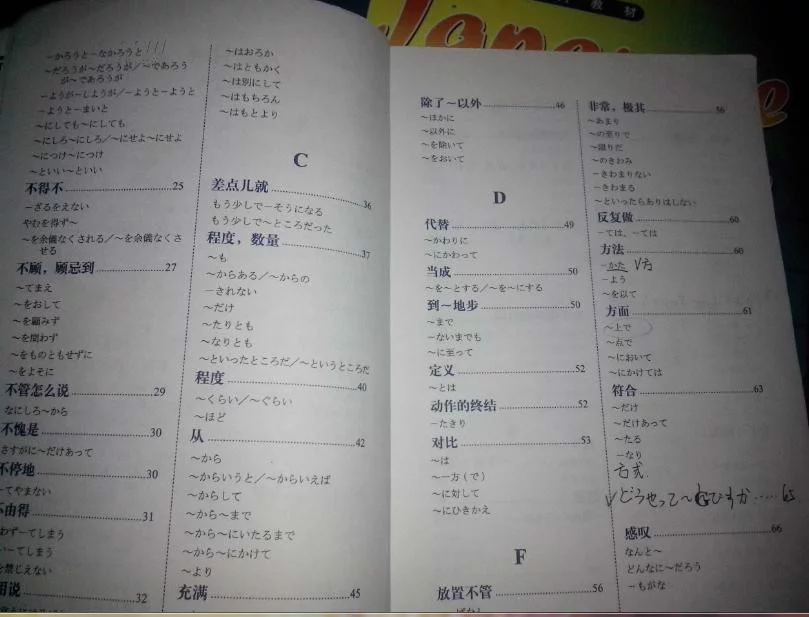 －かろうと－なかろうと
～だろうが～だろうが／～であろう
が～であろうが
－ようが－じようが／－ようと－ようと
－ようと－まいと
～にしても～にしても
～にしろ～にしろ／～にせよ～にせよ
～につけ～につけ
～といい～といい
不得不 25
－ざるをえない
やむを得ず～
～を余儀なくされる／～を余儀なくさ
せる
不顾，顾忌到 27
～てまえ
～をおして
～を顧みず
～を問わず
～をものともせずに
～をよそに
不管怎么说 29
なにしろ～から
不愧是 30
さすがに～だけあって
不停地 30
－てやまない
不由得 31
わず－てしまう
－てしまう
を禁じえない
用说 32
～はおろか
～はともかく
～は別にして
～はもちろん
～はもとより
C
差点儿就 36
もう少しで－そうになる
もう少しで～ところだった
程度，数量 37
～も
～からある／～からの
－されない
～だけ
～たりとも
～なりとも
～といったところだ／～というところだ
程度 40
～くらい／～ぐらい
～ほど
从 42
～から
～からいうと／～からいえば
～からして
～から～まで
～から～にいたるまで
～から～にかけて
～より
充满 45
除了～以外 46
～ほかに
～以外に
～を除いて
～をおいて
D
代替 49
～かわりに
～にかわって
当成 50
～を～とする／～を～にする
到～地步 50
～まで
－ないまでも
～に至って
定义 52
～とは
动作的终结 52
－たきり
对比 53
～は
～一方（で）
～に対して
～にひきかえ
F
放置不管 56
非常，极其 56
～あまり
～の至りで
～限りだ
～のきわみ
－きわまりない
－きわまる
～といったらありはしない
反复做 60
－ては、－ては
方法 60
－かた √方
－よう
～を以て
方面 61
～上で
～点で
～において
～にかけては
符合 63
～だけ
～だけあって
～たる
－なり
方式
√どうやって～
感叹 66
なんと～
どんなに～だろう
－もがな